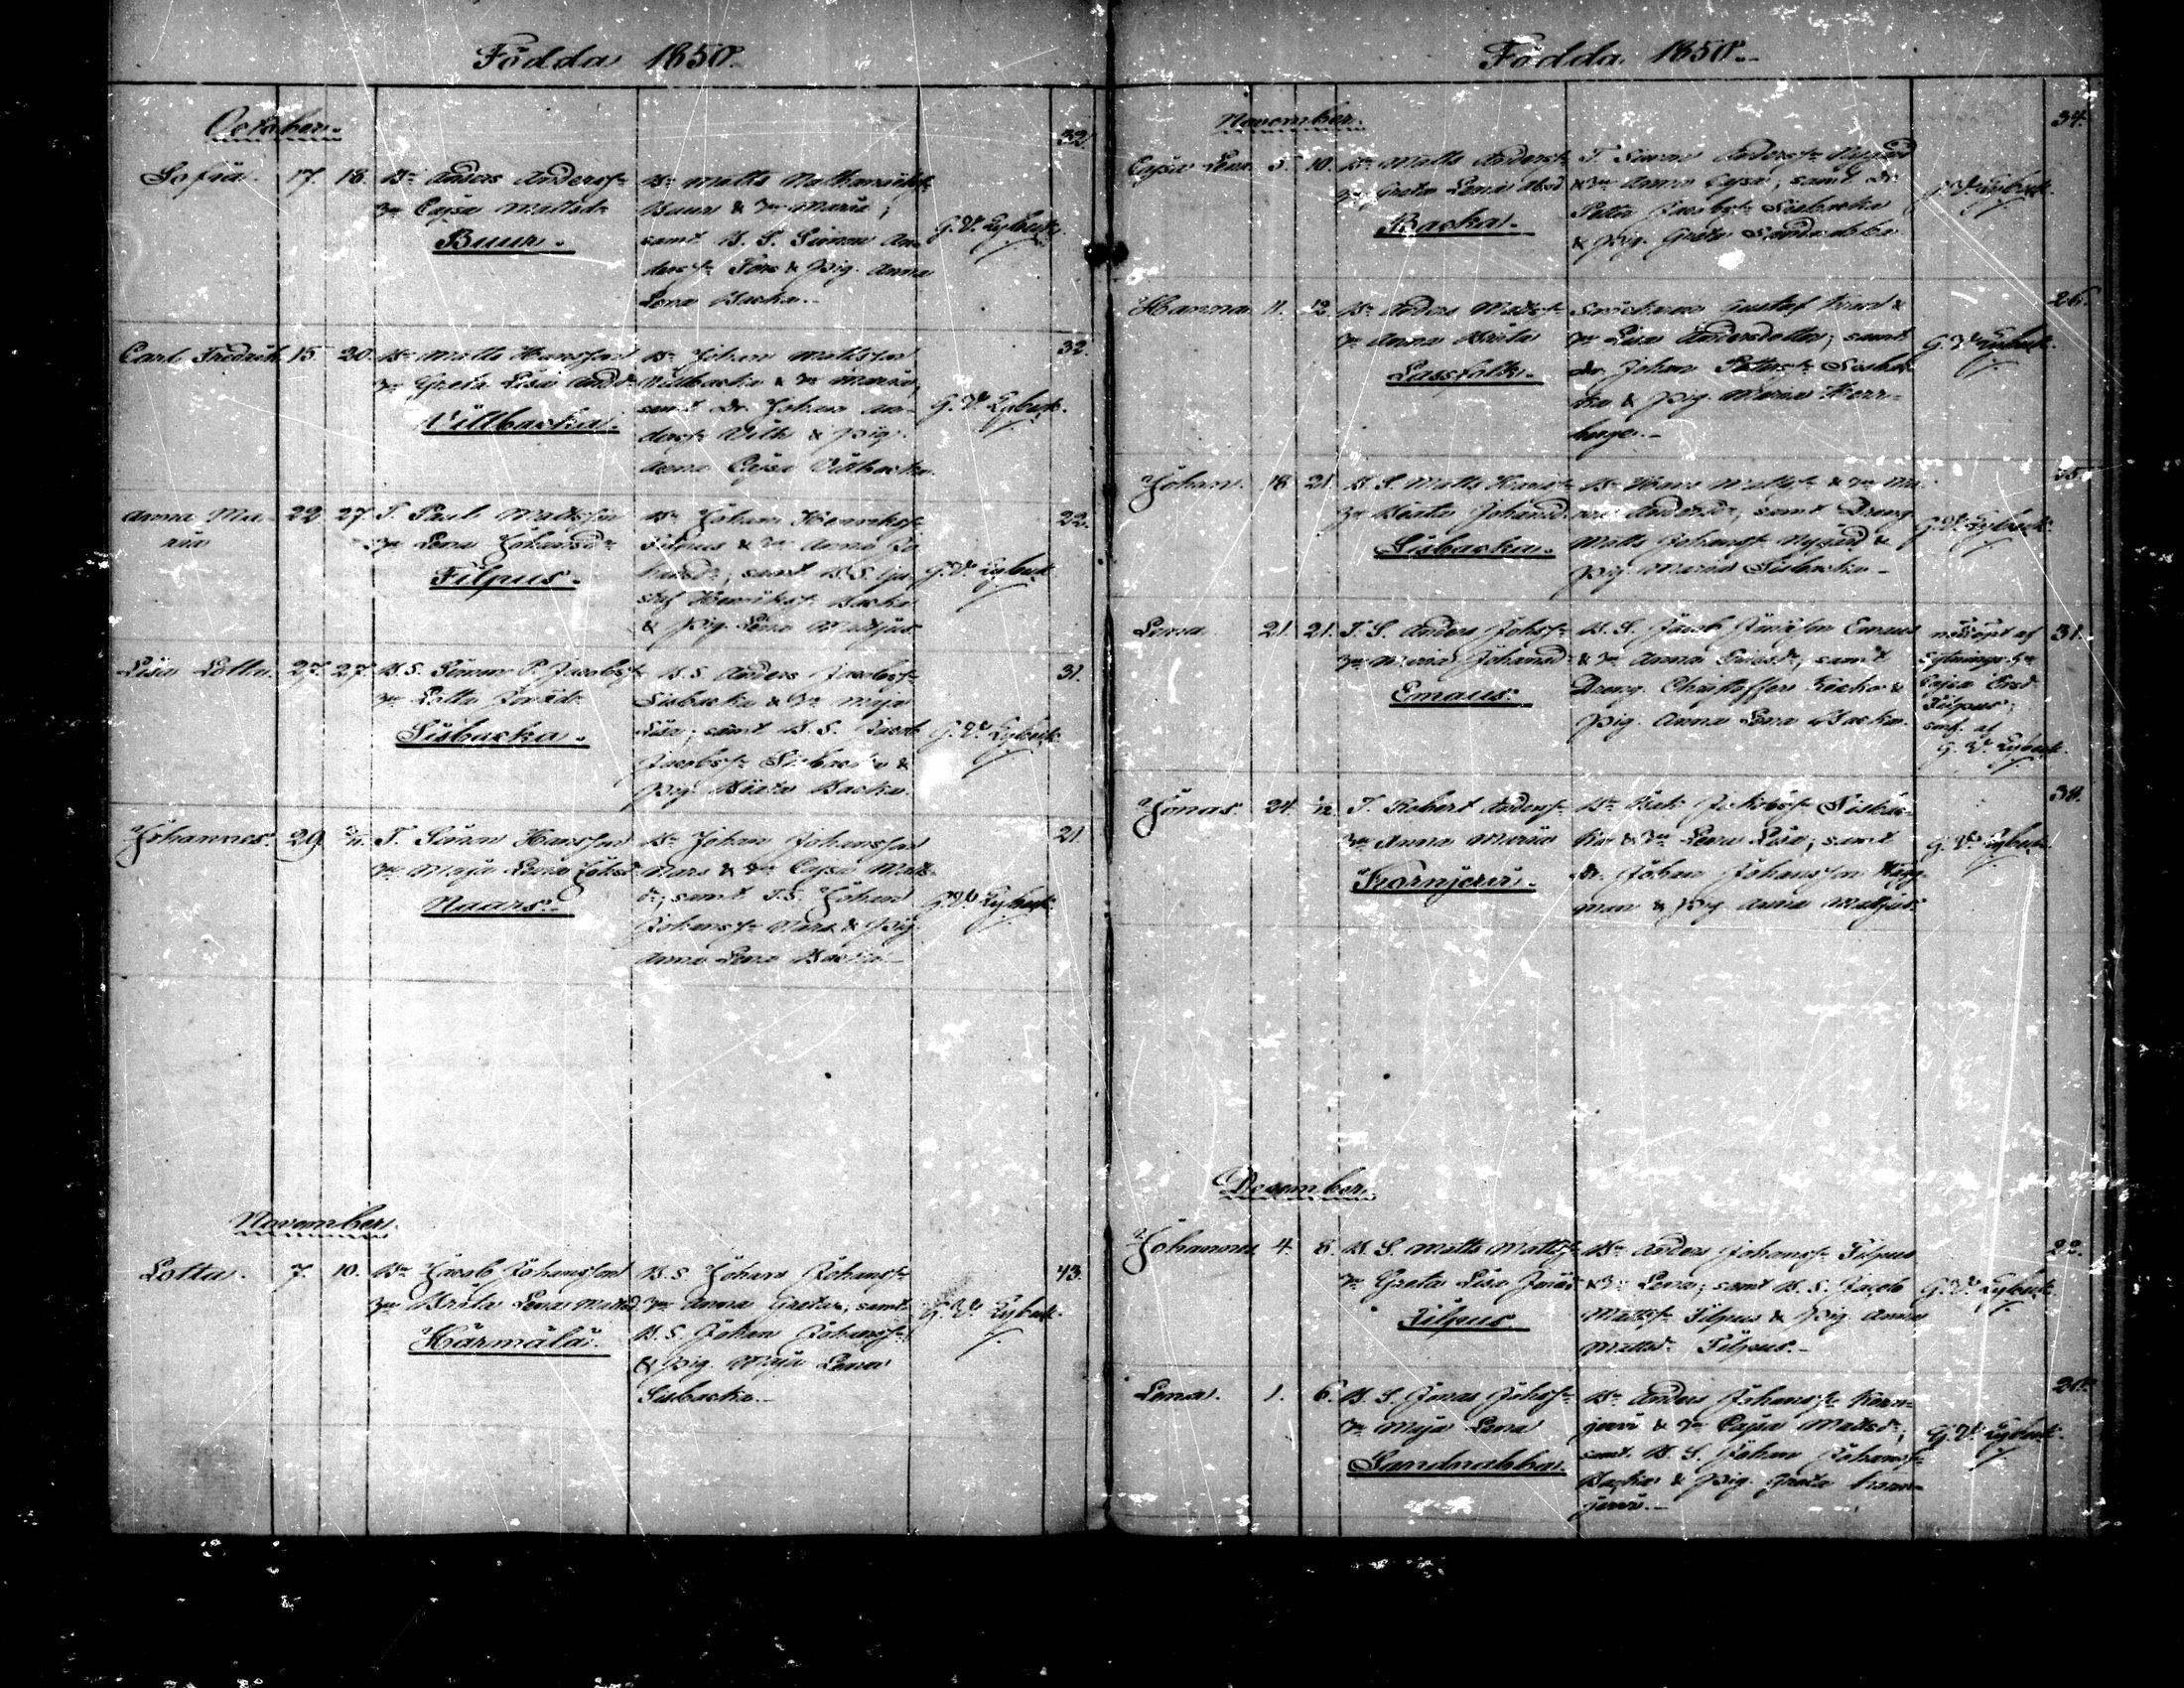 Födda 1850.
October.
32.
Sofia. 17. 18. Bn Anders Anderss.
hu Cajsa Mattsdr
Buur.
Bn Matts
Buur & hu Maria;
samt B. S. Simon An-
derss. Fors & pig. Anna
Lena Backa.
G. V. Eybeck.
Carl Fredrick 15 20. Bn Matts Hansson
hu Greta Lisa Andrsdr
Villbacka.
Bn Johan Mattsson
Villbacka & hu Maria;
samt Dr. Johan An-
derss. & pig.
Anna Cajsa Villbacka.
G. V. Eybeck.
32.
Anna Ma-
ria
22. 27. T. Paul Mattsson
hu Lena Johansdr
Filpus.
Bn Johan Henrikss.
Filpus & hu Anna Jo
hansdr; samt B. S. Gu-
staf Henrikss. Backa
& pig. Lena
G. V. Eybeck.
22.
Lisa Lotta. 27. 27. B. S. Simon P. Jacobss.
hu Lotta
Sisbacka.
B. S. Anders Jacobss.
Sisbacka & hu Maja
Lisa; samt B. S. Jacob
Jacobss. Sisbacka &
pig. Beata Backa.
G. V. Eybeck.
31.
Johannes. 29. 2/11. T. Simon Hansson
hu Maja Lena Johsdr
Naars.
Bn Johan Johansson
Nars & hu Cajsa Matts
dr; samt T. S. Johan
Johanss. Nars & pig
Anna Lena Backa.
G. V. Eybeck.
21.
November.
Lotta. 7. 10. Bn Jacob Johansson
hu Beata Lena Mattsd.
Härmälä.
B. S. Johan Johanss.
hu Anna Greta; samt
B. S. Johan Johanss.
& pig. Maja Lena
Sisbacka.
G. V. Eybeck.
43.
Födda 1850.
November.
34.
Cajsa Lena. 5. 10. Bn Matts Anderss.
hu Greta Lena
Backa.
T. Simon Anderss. Nygård
& hu Anna Cajsa; samt Dr.
Petter Jacobss. Sisbacka
& pig. Greta Sandnabba
G. V. Eybeck.
Hanna 11. 12. Bn Anders Matss.
hu Anna Beata
Lassfolk.
Gustaf &
hu Lisa Andersdotter; samt
Dr. Johan Petterss. Sisbac
ka & pig. Maria Herr-
berga.
G. V. Eybeck.
26.
Johan. 18 21. B. S. Matts Hanss.
hu Beata Johansd.
Sisbacka.
Bn Hans Mattss. & hu Ma-
ria Andersdr; samt Dreng
Matts Johanss. Nygård &
pig. Maria Sisbacka.
G. V. Eybeck.
35.
Lena 21. 21. T. S. Anders Johss.
hu Maria Johansd.
Emaus.
B. S. Jacob Emaus
& hu Anna; samt
Dreng. Christoffer &
pig. Anna Lena Backa.
nöddöpt af
Sytnings hu
Cajsa Ersd.
Filpus;
af
G. V. Eybeck.
31.
Jonas. 24. 1/12. T. Robert Anderss.
hu Anna Maria
Karnjervi.
Bn Jakobss. Sisbac-
ka & hu Lena Lisa; samt
Dr. Johan Johansson Hägg-
man & pig. Anna
G. V. Eybeck.
38.
December.
Johannes 4. 8. B. S. Matts Mattss.
hu Greta Lisa
Filpus.
Bn Anders Johanss. Filpus
& hu Lena; samt B. S. Jacob
Mattss. Filpus & pig. Anna
Mattsd. Filpus.
G. V. Eybeck.
22.
Lena. 1. 6. B. S. Jonas Johss.
hu Maja Lena
Sandnabba.
Bn Anders Johanss. Karn-
jervi & hu Cajsa Mattsdr;
samt. B. S. Johan Johanss.
Backa & pig. Greta Karn-
jervi.
G. V. Eybeck.